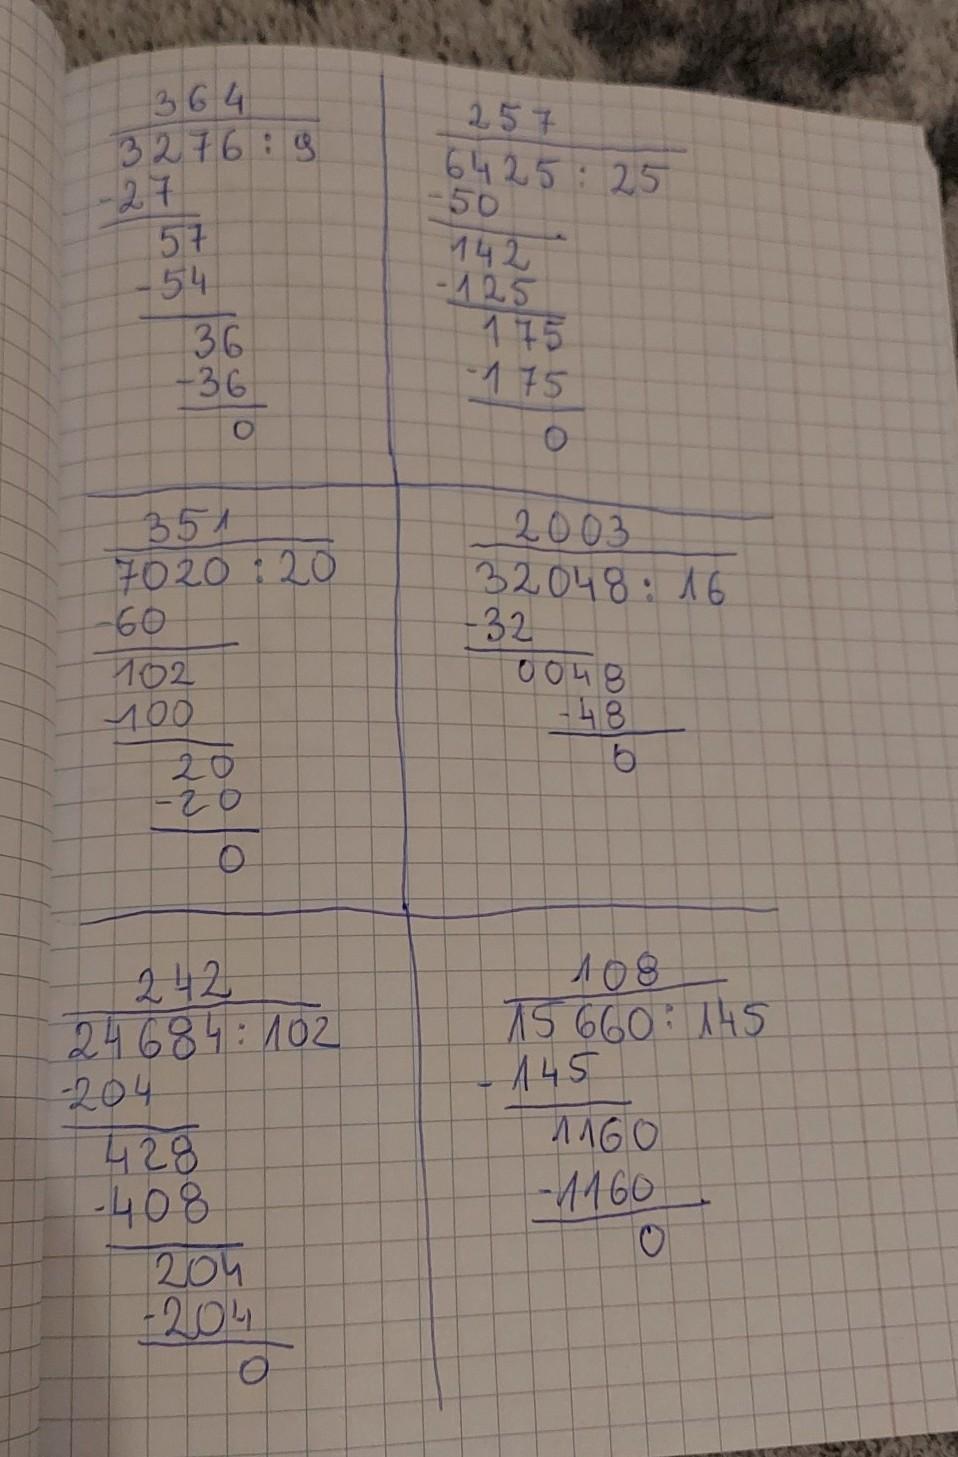 364
3276 : 9
-27
57
-54
36
-36
0
257
6425 : 25
-50
142
-125
175
-175
0
351
7020 : 20
-60
102
-100
20
-20
0
2003
32048 : 16
-32
0048
-48
0
242
24684 : 102
-204
428
-408
204
-204
0
108
15660 : 145
-145
1160
-1160
0